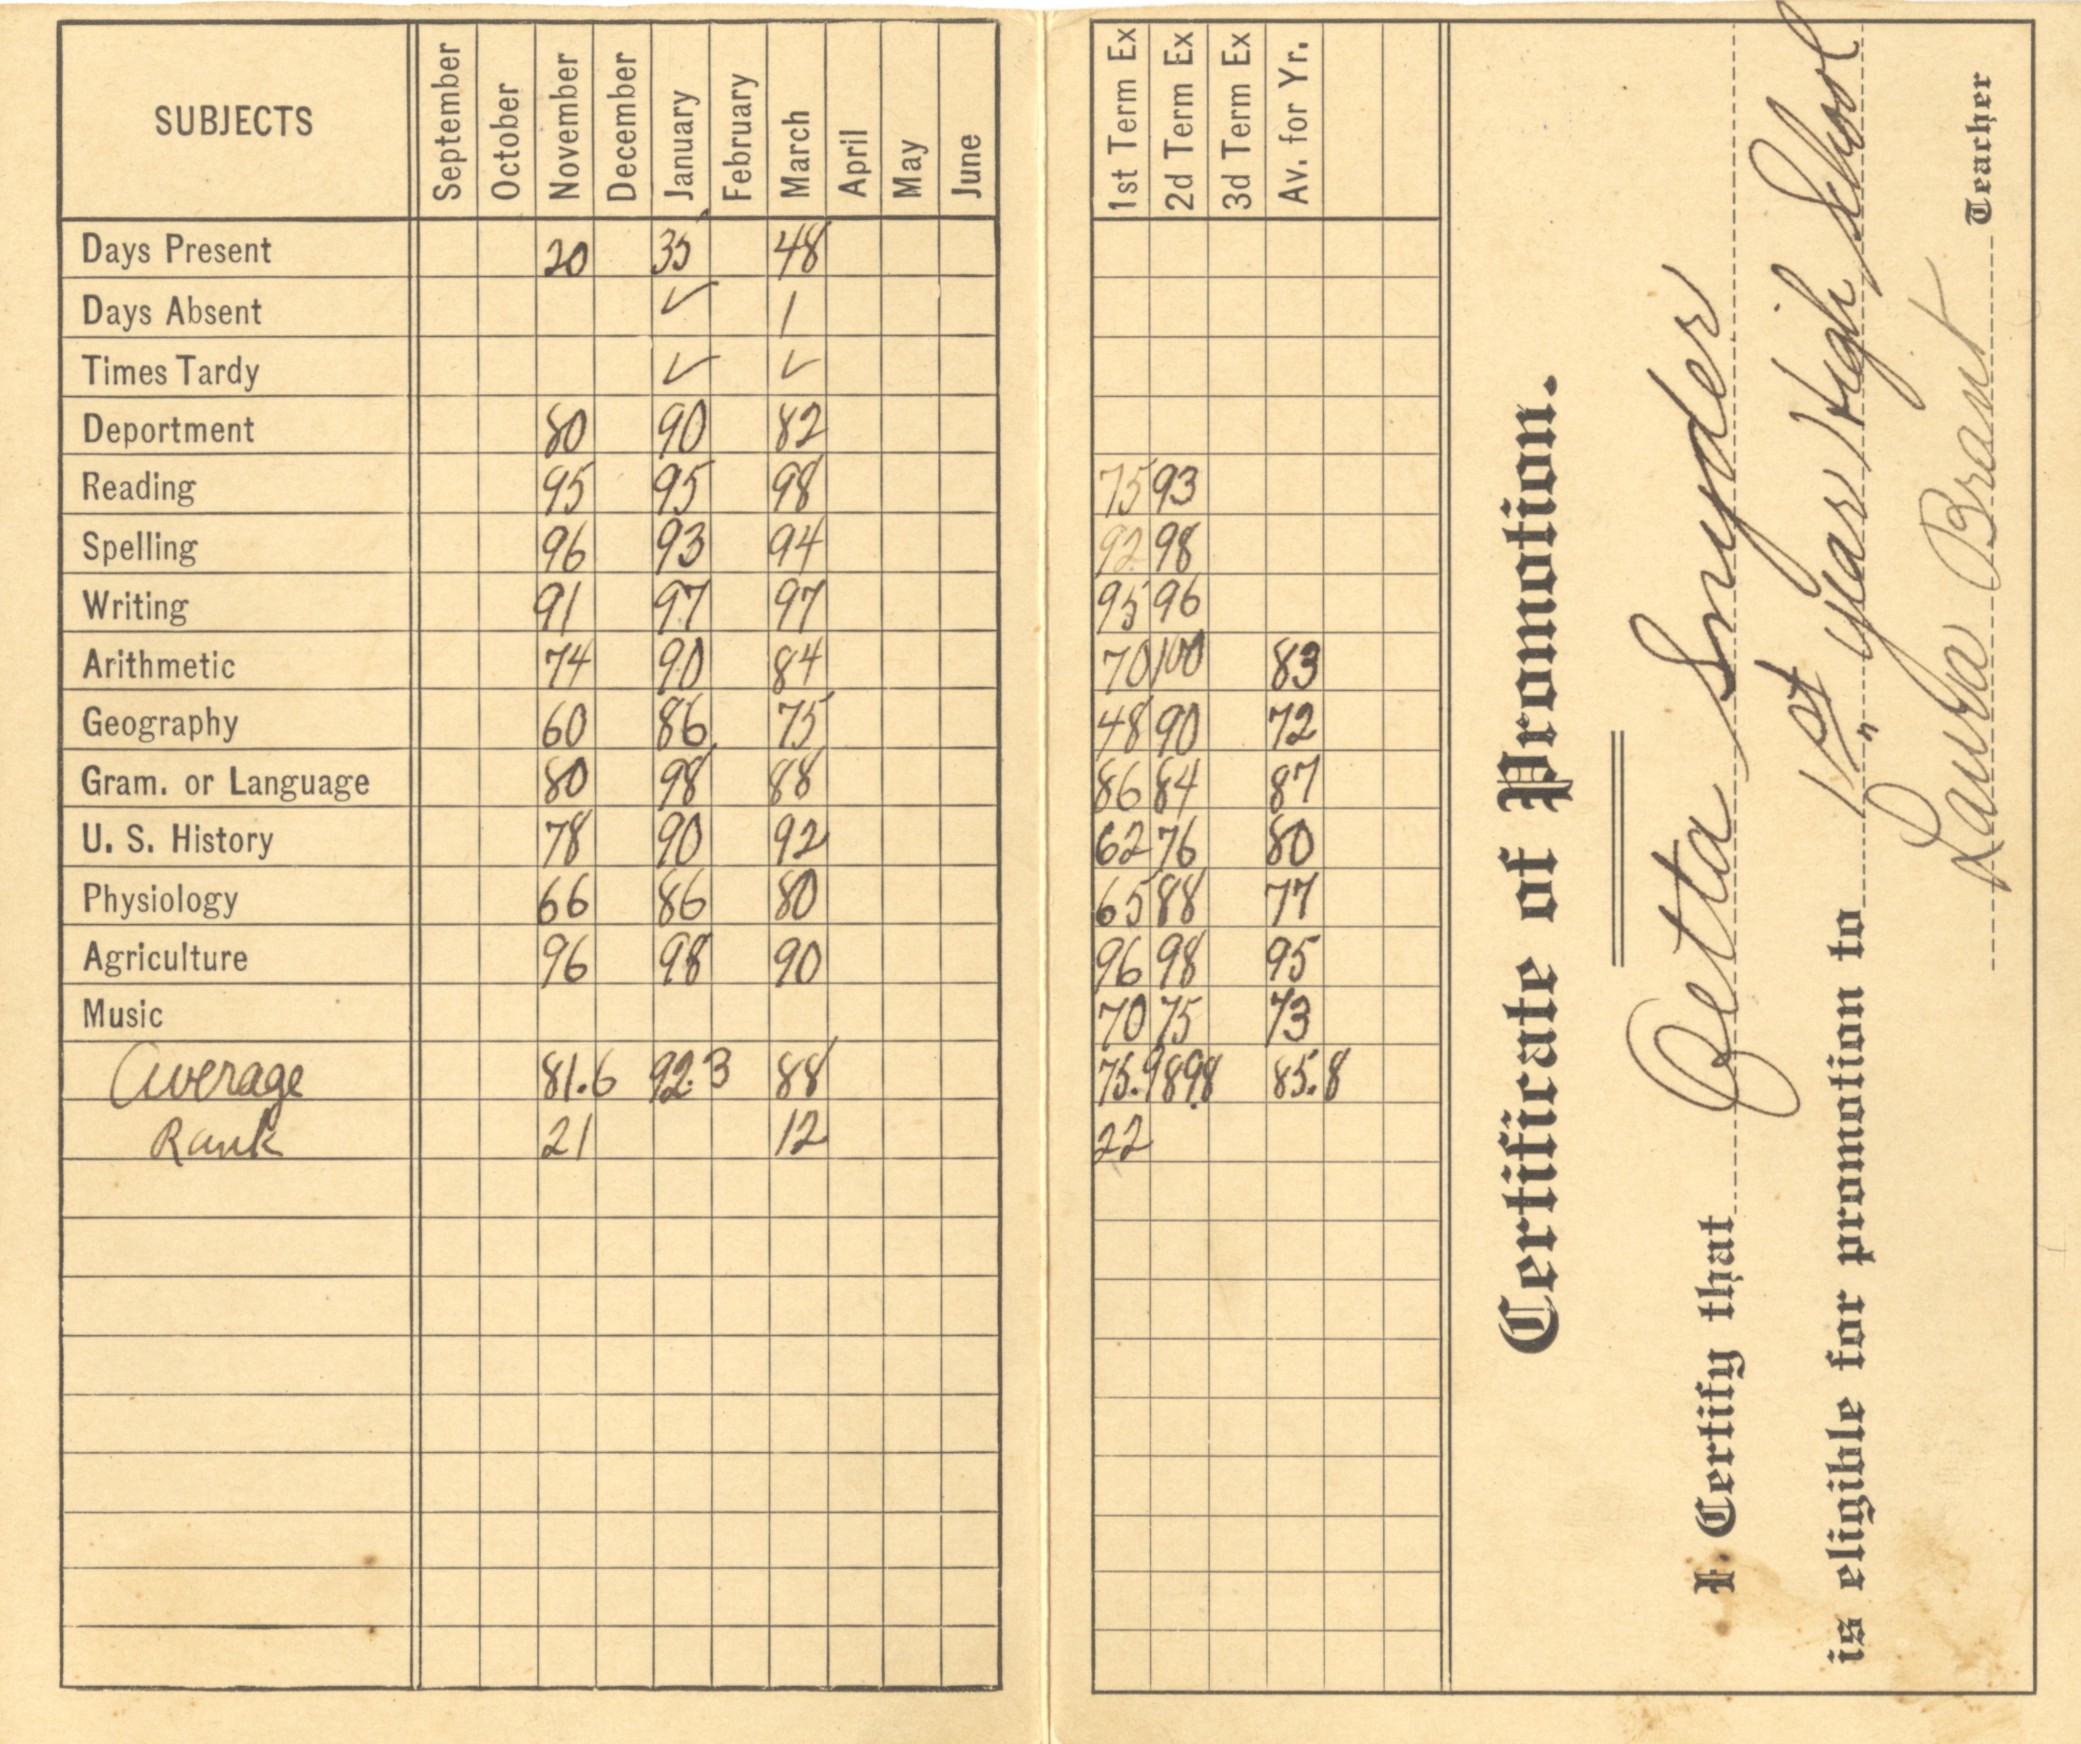 SUBJECTS September October November December January February March April May June 1st Term Ex 2d Term Ex 3d Term Ex Av. for Yr.
Days Present 20 35 48
Days Absent ✓ 1
Times Tardy ✓ ✓
Deportment 80 90 82
Reading 95 95 98 75 93
Spelling 96 93 94 92 98
Writing 91 97 97 95 96
Arithmetic 74 90 84 70 100 83
Geography 60 86 75 48 90 72
Gram. or Language 80 98 88 86 84 87
U. S. History 78 90 92 62 76 80
Physiology 66 86 80 65 88 77
Agriculture 96 98 90 96 98 95
Music 70 75 73
Average 81.6 92.3 88 75.9 89.8 85.8
Rank 21 12 22
Certificate of Promotion.
I Certify that Retta Snyder
is eligible for promotion to 1st year High School
Laura Brant Teacher